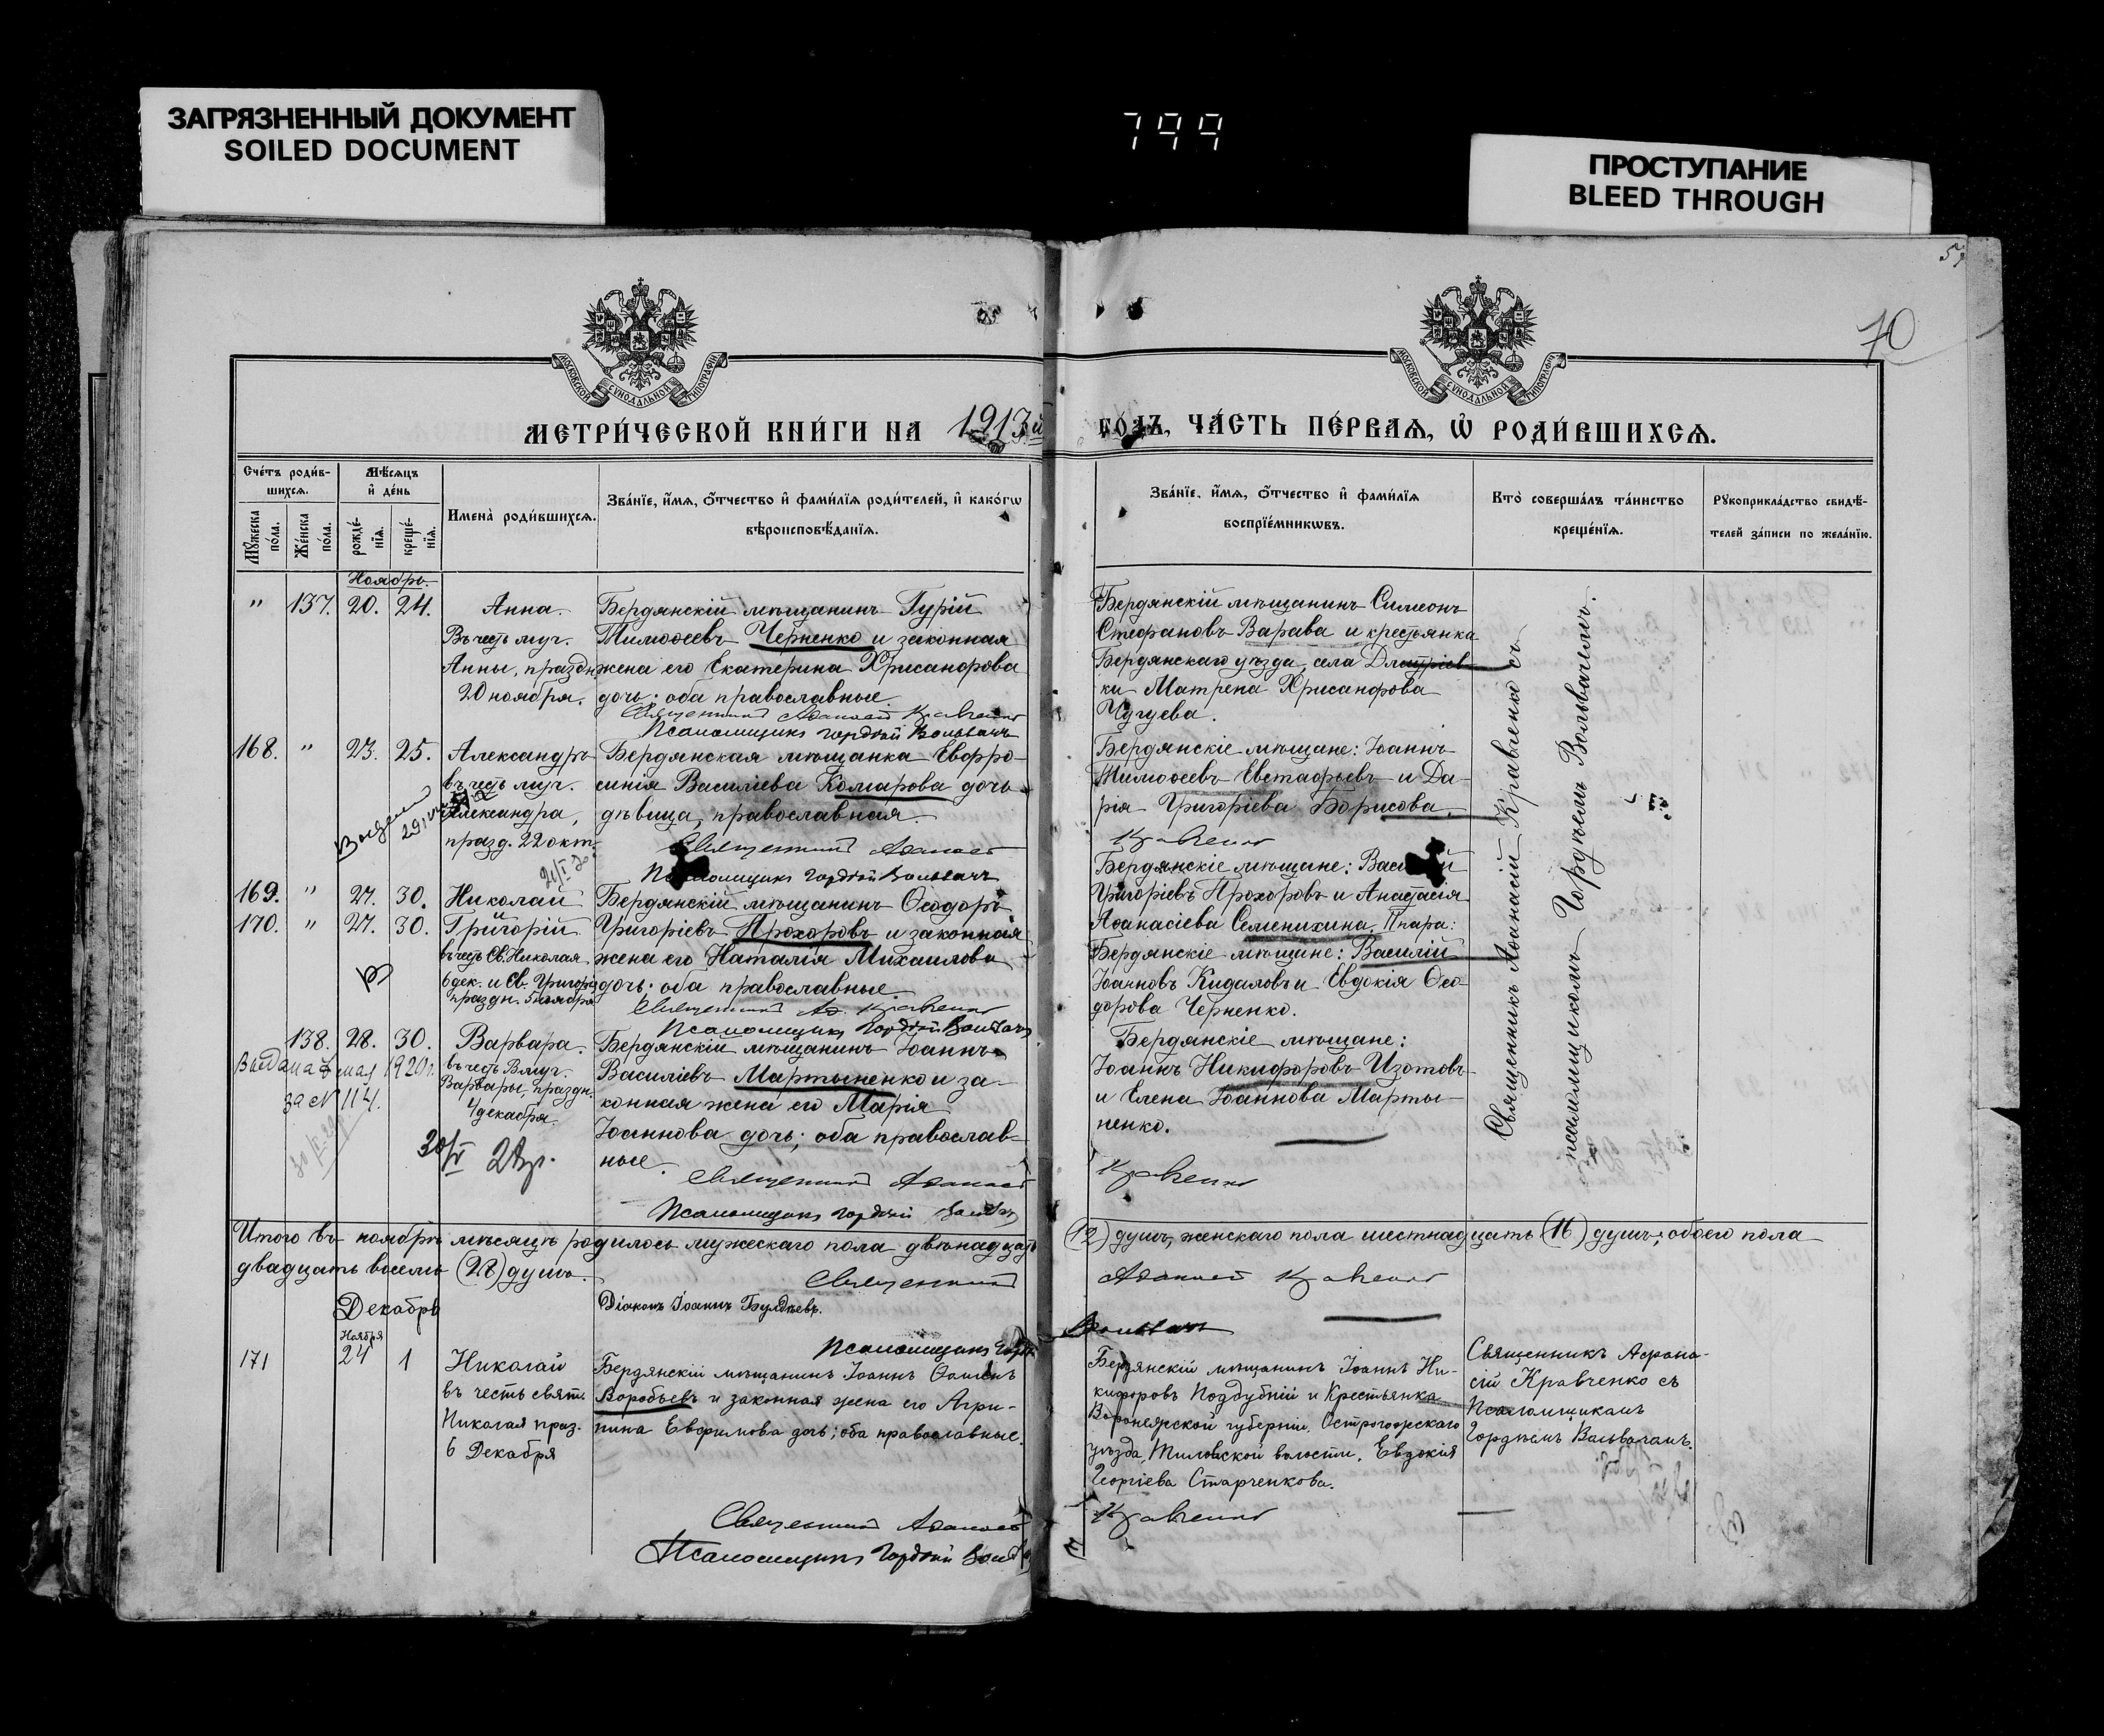 ЗАГРЯЗНЕННЫЙ ДОКУМЕНТ
SOILED DOCUMENT
799
ПРОСТУПАНИЕ
BLEED THROUGH
70
МОСКОВСКОЙ СѴНОДАЛЬНОЙ ТИПОГРАФІИ
МОСКОВСКОЙ СѴНОДАЛЬНОЙ ТИПОГРАФІИ
МЕТРИ́ЧЕСКОЙ КНИ́ГИ НА 1913й ГО́ДЪ, ЧА́СТЬ ПЕ́РВАѦ, Ѡ҆ РОДИ́ВШИХСѦ.
Сче́тъ роди́в-
шихсѧ.
Мѣ́сѧцъ
и҆ де́нь
Мꙋ́жеска по́ла.
Же́нска по́ла.
рожде́-
нїѧ.
креще́-
нїѧ.
И҆мена̀ роди́вшихсѧ.
Зва́нїе, и҆́мѧ, ѻ҆́тчество и҆ фами́лїѧ роди́телей, и҆ како́гѡ
вѣроисповѣ́данїѧ.
Зва́нїе, и҆́мѧ, ѻ҆́тчество и҆ фами́лїѧ
воспрїе́мникѡвъ.
Кто̀ соверша́лъ та́инство
креще́нїѧ.
Рꙋкоприкла́дство свидѣ́-
телей за́писи по жела́нїю.
Ноябрь.
" 137. 20. 24.
Анна.
Въ честь муч.
Анны, праздн.
20 ноября.
Бердянскій мѣщанинъ Гурій
Тимоѳеевъ Черненко и законная
жена его Екатерина Хрисанфова
дочь; оба православные.
Священникъ Аѳанасій Кравченко
Псаломщикъ Гордѣй Вольвачъ
Бердянскій мѣщанинъ Симеонъ
Стефановъ Варава и крестьянка
Бердянскаго уѣзда, села Дмитріев-
ки Матрена Хрисанфова
Чугуева.
168. " 23. 25.
Александръ
въ честь муч.
Александра,
празд. 22 окт.
Бердянская мѣщанка Евфро-
синія Василіева Комарова дочь
дѣвица, православная.
Священникъ Аѳанасій Кравченко
Псаломщикъ Гордѣй Вольвачъ
Бердянскіе мѣщане: Іоаннъ
Тимоѳеевъ Евстафьевъ и Да-
рія Григоріева Борисова.
169. " 27. 30. Николай
170. " 27. 30. Григорій
въ честь Св. Николая
6 дек. и Св. Григорія
праздн. 5 ноября
Бердянскій мѣщанинъ Ѳеодоръ
Григоріевъ Прохоровъ и законная
жена его Наталія Михаилова
дочь; оба православные.
Священникъ Аѳ. Кравченко
Псаломщикъ Гордѣй Вольвачъ
Бердянскіе мѣщане: Василій
Григоріевъ Прохоровъ и Анастасія
Аѳанасіева Семенихина. II пара:
Бердянскіе мѣщане: Василій
Іоанновъ Кидаловъ и Евдокія Ѳео-
дорова Черненко.
138. 28. 30.
Выдана 8 мая 1920 г.
за № 114.
Варвара.
въ честь Влмуч.
Варвары, праздн.
4 декабря.
Бердянскій мѣщанинъ Іоаннъ
Василіевъ Мартыненко и за-
конная жена его Марія
Іоаннова дочь; оба православ-
ные.
Священникъ Аѳанасій Кравченко
Псаломщикъ Гордѣй Вольвачъ
Бердянскіе мѣщане:
Іоаннъ Никифоровъ Изотовъ
и Елена Іоаннова Марты-
ненко.
Священникъ Аѳанасій Кравченко съ
псаломщикомъ Гордѣемъ Вольвачемъ.
Итого въ ноябрѣ мѣсяцѣ родилось мужескаго пола двѣнадцать (12) душъ, женскаго пола шестнадцать (16) душъ; обоего пола
двадцать восемь (28) душъ.
Священникъ Аѳанасій Кравченко
Діаконъ Іоаннъ Булдѣевъ.
Псаломщикъ Гордѣй Вольвачъ
Декабрь
Ноября
171 24 1
Николай
въ честь свят.
Николая праз.
6 Декабря
Бердянскій мѣщанинъ Іоаннъ Ѳоминъ
Воробьевъ и законная жена его Агри-
пина Евфимова дочь; оба православные.
Бердянскій мѣщанинъ Іоаннъ Ни-
кифоровъ Поддубный и Крестьянка
Воронежской губерніи, Острогожскаго
уѣзда, волости, Евдокія
Георгіева Старченкова.
Священникъ Афана-
сій Кравченко съ
Псаломщикамъ
Гордѣемъ Вольвачамъ.
Священникъ Аѳанасій Кравченко
Псаломщикъ Гордѣй Вольвачъ